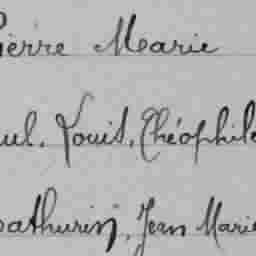 Pierre Marie
Paul, Louis, Théophile
Mathurin, Jean Marie